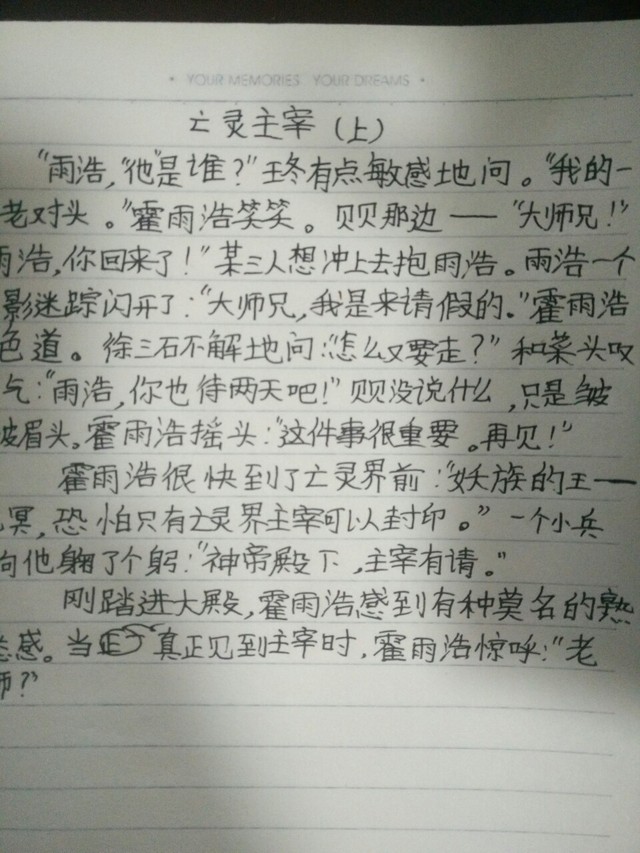 • YOUR MEMORIES YOUR DREAMS •
亡灵主宰（上）
“雨浩，“他”是谁？”王冬有点敏感地问。“我的一
老对头。”霍雨浩笑笑。贝贝那边——“大师兄！”
雨浩，你回来了！”某三人想冲上去抱雨浩。雨浩一个
影迷踪闪开了：“大师兄，我是来请假的。”霍雨浩
色道。徐三石不解地问：“怎么又要走？”和菜头叹
气：“雨浩，你也待两天吧！”贝贝没说什么，只是皱
皱眉头。霍雨浩摇头：“这件事很重要。再见！”
霍雨浩很快到了亡灵界前：“妖族的王——
冥，恐怕只有亡灵界主宰可以封印。”一个小兵
向他鞠了个躬：“神帝殿下，主宰有请。”
刚踏进大殿，霍雨浩感到有种莫名的熟
悉感。当真正见到主宰时，霍雨浩惊呼：“老
师？”